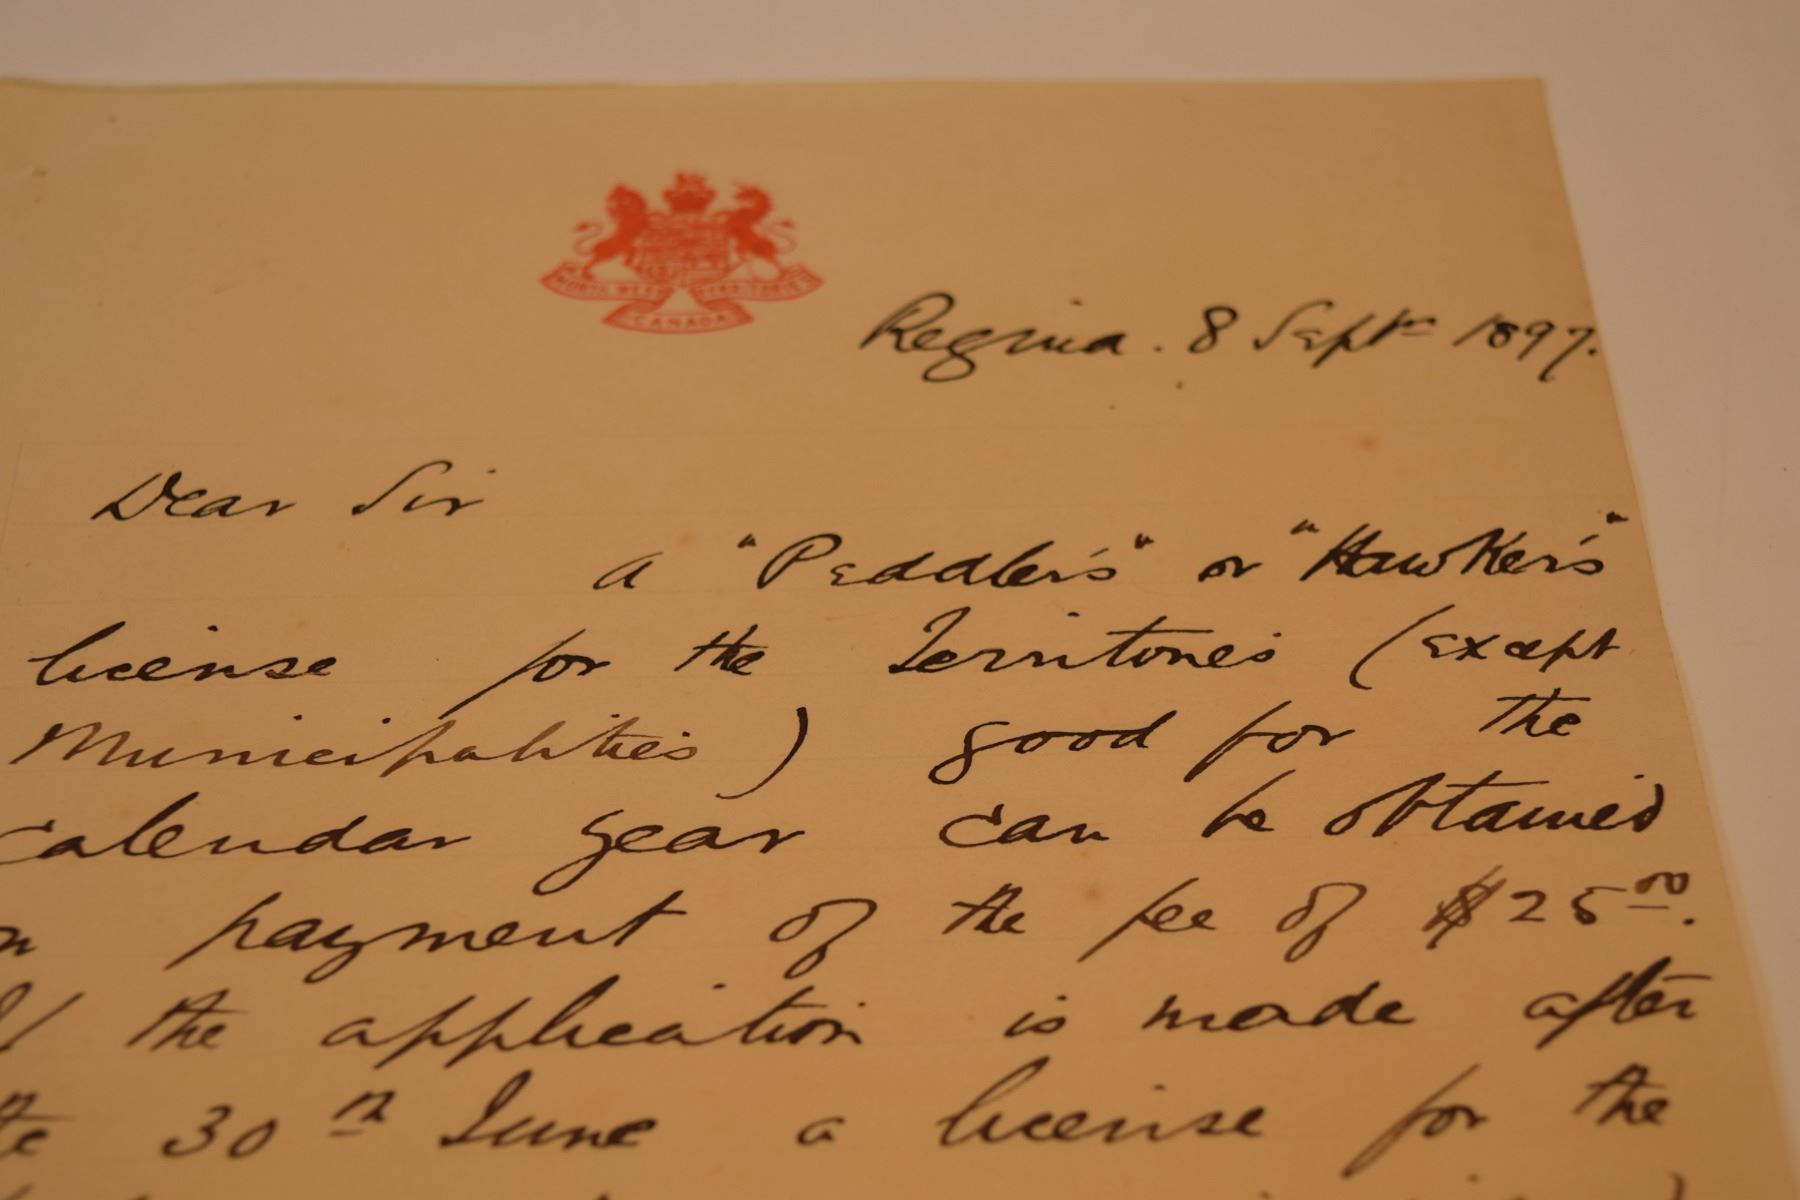 NORTH WEST TERRITORIES
CANADA
Regina. 8 Septr 1897.
Dear Sir
A "Peddler's" or "Hawker's"
license for the Territories (except
Municipalities) good for the
calendar year can be obtained
on payment of the fee of $25.00.
If the application is made after
the 30th June a license for the